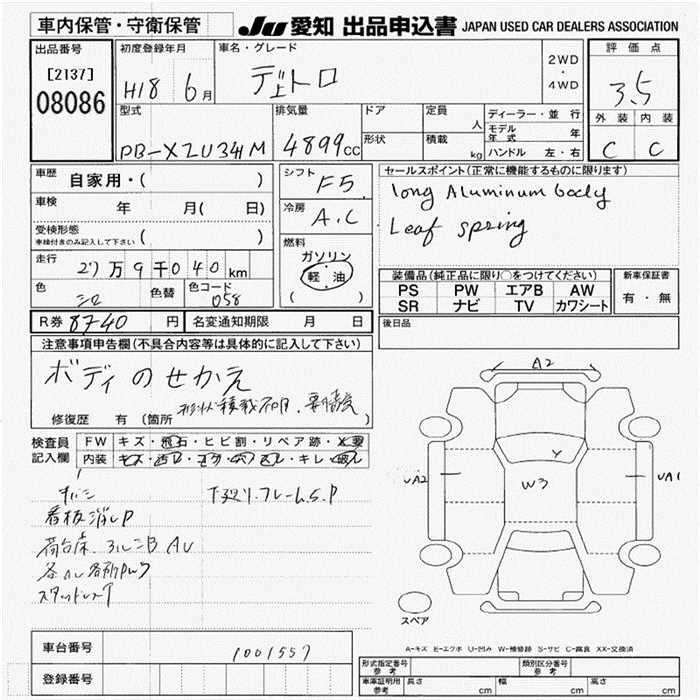 車内保管・守衛保管
JU 愛知 出品申込書 JAPAN USED CAR DEALERS ASSOCIATION
出品番号
[2137]
08086
初度登録年月
H18 6月
車名・グレード
デュトロ
2WD
・
4WD
評価点
3.5
外装 内装
C C
型式
PB-XZU341M
排気量
4899cc
ドア
形状
定員
人
積載
kg
ディーラー・並行
モデル年式 年
ハンドル 左・右
車歴
自家用・( )
車検
年 月( 日)
受検形態
車検付きのみ記入して下さい ( )
走行
27万9千040km
色
シロ
色替
色コード
058
シフト
F5
冷房
A.C
燃料
ガソリン
軽・油
( )
セールスポイント(正常に機能するものに限ります)
long Aluminum body
Leaf spring
装備品(純正品に限り○をつけてください)
PS PW エアB AW
SR ナビ TV カワシート
新車保証書
有・無
後日品
R券 8740 円
名変通知期限 月 日
注意事項申告欄(不具合内容等は具体的に記入して下さい)
ボディのせかえ
修復歴 有(箇所
検査員
記入欄
FW キズ・飛石・ヒビ割・リペア跡・X要
内装
キレ
看板消しP
下廻り.フレームS.P
A2
UA2
Y
W3
UA1
スペア
A-キズ E-エクボ U-凹み W-補修跡 S-サビ C-腐食 XX-交換済
車台番号
1001557
登録番号
形式指定番号
参考
類別区分番号
参考
車庫証明用
参考
長さ cm
幅 cm
高さ cm